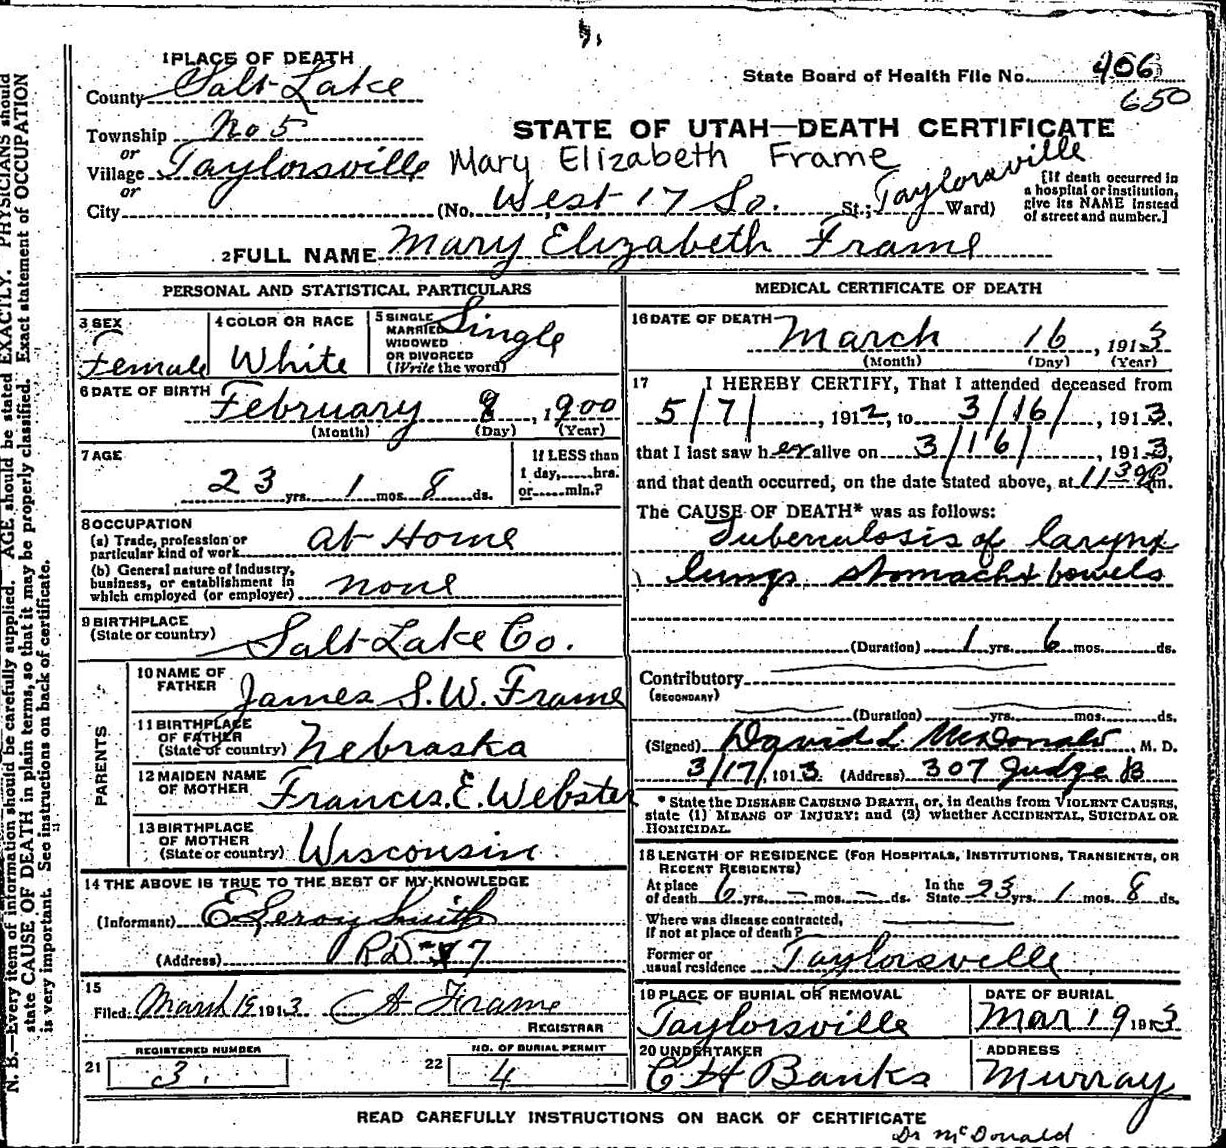 1 PLACE OF DEATH
County Salt Lake
State Board of Health File No. 406
650
Township No 5
or
Village Taylorsville
or
City
STATE OF UTAH—DEATH CERTIFICATE
Mary Elizabeth Frame
(No. West 17 So. St.; Taylorsville Ward)
[If death occurred in
a hospital or institution,
give its NAME instead
of street and number.]
2 FULL NAME Mary Elizabeth Frame
PERSONAL AND STATISTICAL PARTICULARS
3 SEX
Female
4 COLOR OR RACE
White
5 SINGLE
MARRIED
WIDOWED
OR DIVORCED
(Write the word)
Single
6 DATE OF BIRTH
February 8, 1900
(Month) (Day) (Year)
7 AGE
23 yrs. 1 mos. 8 ds.
If LESS than
1 day, hrs.
or min.?
8 OCCUPATION
(a) Trade, profession or
particular kind of work at Home
(b) General nature of industry,
business, or establishment in
which employed (or employer) none
9 BIRTHPLACE
(State or country) Salt Lake Co.
PARENTS
10 NAME OF
FATHER James S. W. Frame
11 BIRTHPLACE
OF FATHER
(State or country) Nebraska
12 MAIDEN NAME
OF MOTHER Francis. E. Webster
13 BIRTHPLACE
OF MOTHER
(State or country) Wisconsin
14 THE ABOVE IS TRUE TO THE BEST OF MY KNOWLEDGE
(Informant) E Leroy Smith
(Address) RD 7
15
Filed March 19 1913 A Frame
REGISTRAR
REGISTERED NUMBER
21 3.
NO. OF BURIAL PERMIT
22 4
MEDICAL CERTIFICATE OF DEATH
16 DATE OF DEATH
March 16, 1913
(Month) (Day) (Year)
17 I HEREBY CERTIFY, That I attended deceased from
5/7/, 1912, to 3/16/, 1913,
that I last saw her alive on 3/16/, 1913,
and that death occurred, on the date stated above, at 11 30 P m.
The CAUSE OF DEATH* was as follows:
Tuberculosis of larynx
lungs stomach & bowels
(Duration) 1 yrs. 6 mos. ds.
Contributory
(SECONDARY)
(Duration) yrs. mos. ds.
(Signed) David L McDonald, M. D.
3/17/, 1913. (Address) 307 Judge B
* State the DISEASE CAUSING DEATH, or, in deaths from VIOLENT CAUSES,
state (1) MEANS OF INJURY; and (2) whether ACCIDENTAL, SUICIDAL OR
HOMICIDAL.
18 LENGTH OF RESIDENCE (FOR HOSPITALS, INSTITUTIONS, TRANSIENTS, OR
RECENT RESIDENTS)
At place
of death 6 yrs. – mos. – ds. In the
State 23 yrs. 1 mos. 8 ds.
Where was disease contracted,
if not at place of death?
Former or
usual residence Taylorsville
19 PLACE OF BURIAL OR REMOVAL
Taylorsville
DATE OF BURIAL
Mar 19 1913
20 UNDERTAKER
C H Banks
ADDRESS
Murray
READ CAREFULLY INSTRUCTIONS ON BACK OF CERTIFICATE
Dr McDonald
N. B.—Every item of information should be carefully supplied. AGE should be stated EXACTLY. PHYSICIANS should
state CAUSE OF DEATH in plain terms, so that it may be properly classified. Exact statement of OCCUPATION
is very important. See instructions on back of certificate.